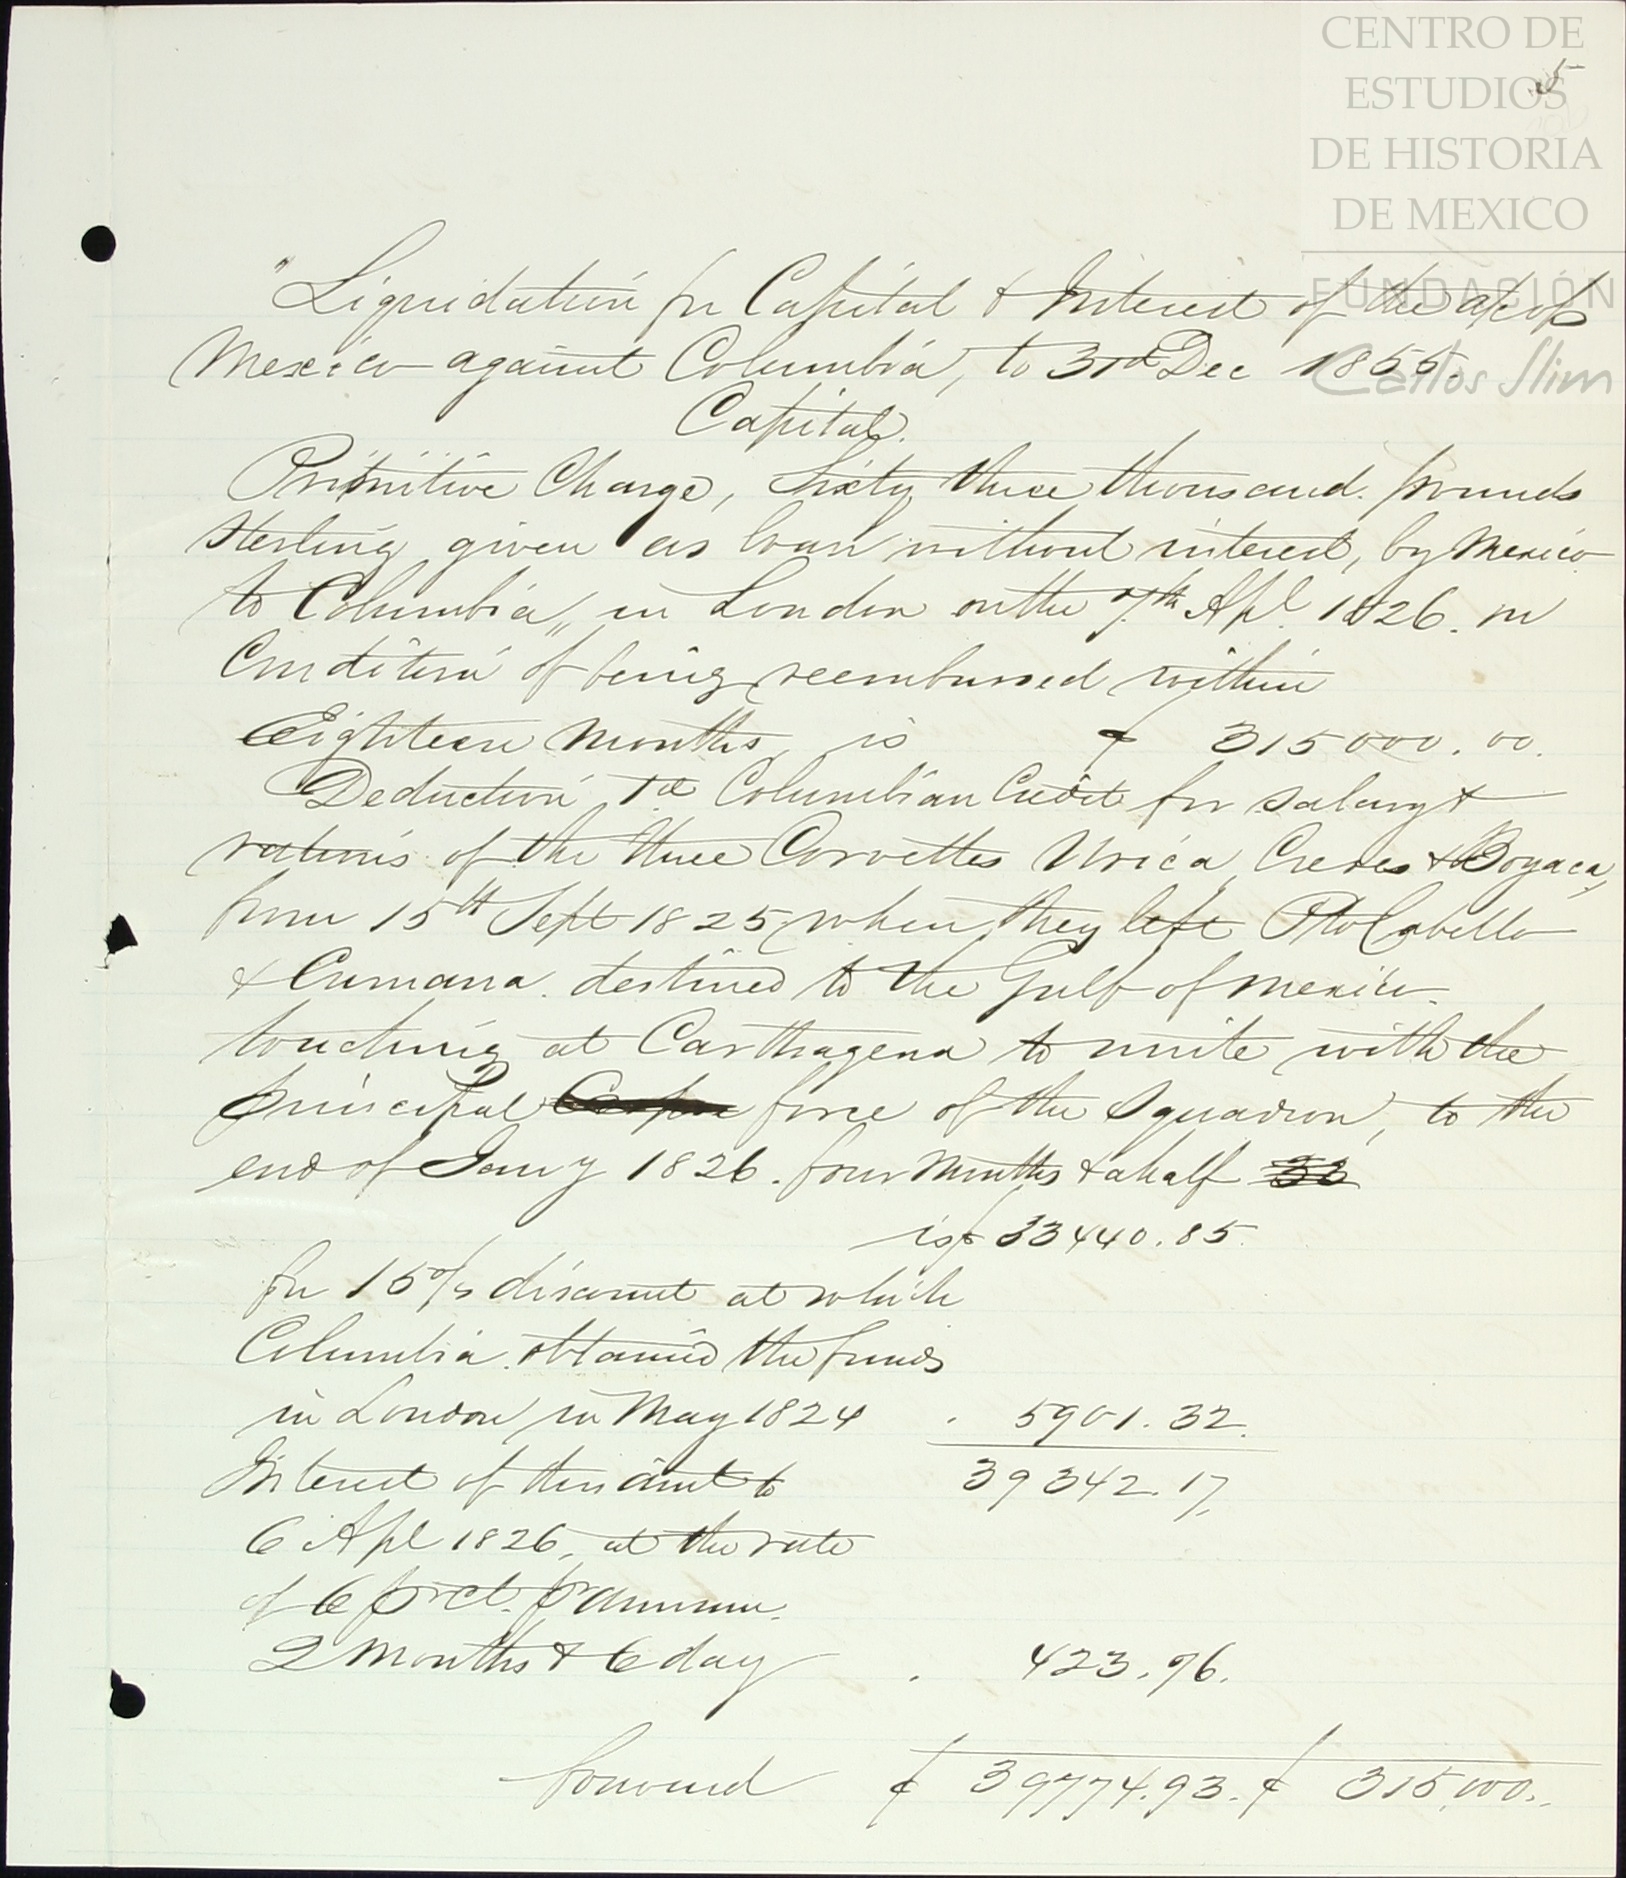 CENTRO DE
ESTUDIOS
DE HISTORIA
DE MEXICO
FUNDACIÓN
Carlos Slim
5
"Liquidation for Capital & Interest of the a/c of
Mexico against Columbia, to 31st Dec 1855.
Capital.
Primitive Charge, Sixty three thousand pounds
Sterling given as loan without interest, by Mexico
to Columbia, in London on the 7th Apl. 1826. on
Condition of being reembursed within
Eighteen Months, is $ 315000.00.
Deduction, 1st Columbian Credit for salary &
rations of the three Corvettes Urica, Ceres & Boyaca,
from 15th Sept 1825 when they left Pto Cabello
& Cumana destined to the Gulf of Mexico
touching at Carthagena to unite with the
principal force of the Squadron, to the
end of Jany 1826. four Months & a half 33
is $ 33440.85.
for 15% discount at which
Columbia obtained the funds
in London in May 1824 . 5901.32.
Interest of this amt to 39342.17.
6 Apl 1826, at the rate
of 6 pr ct. pr annum.
2 Months & 6 day . 423.96.
forward $ 39774.93. $ 315,000..